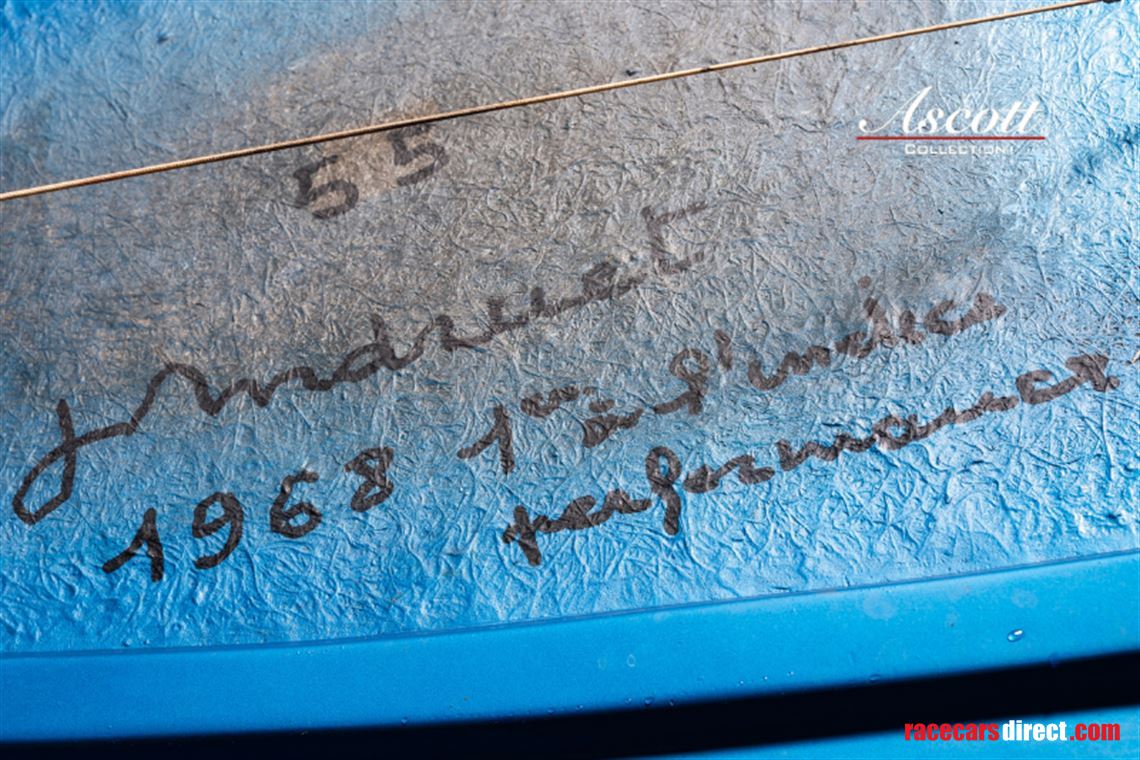 Ascott
COLLECTION
55
J Andruet
1968 1er à l'indice
performance
racecarsdirect.com